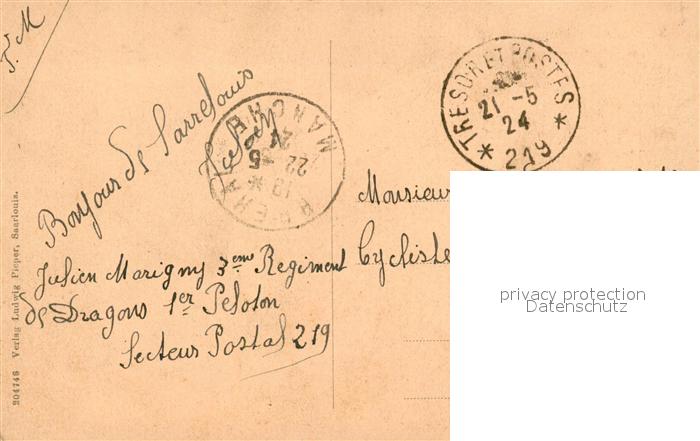 F. M
Bonjour de Sarrelouis
Julien
Julien Marigny 3eme Regiment
de Dragons 1er Peloton
Secteur Postal 219
TRESOR ET POSTES
21 -5
24
* 219 *
MANCHE
22 - 5
24
Monsieur
Cycliste
204746 Verlag Ludwig Pieper, Saarlouis.
privacy protection
Datenschutz